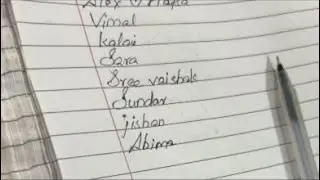 Alex
Vimal
Kalai
Sara
Sree vaishak
Sundar
jishan
Abima